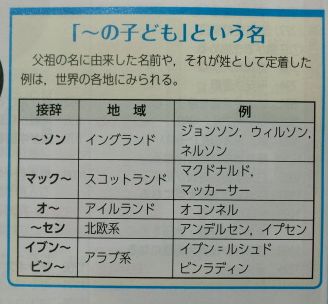 「～の子ども」という名
父祖の名に由来した名前や，それが姓として定着した
例は，世界の各地にみられる。
接辞 地域 例
～ソン イングランド ジョンソン，ウィルソン，
ネルソン
マック～ スコットランド マクドナルド，
マッカーサー
オ～ アイルランド オコンネル
～セン 北欧系 アンデルセン，イプセン
イブン～
ビン～ アラブ系 イブン＝ルシュド
ビンラディン